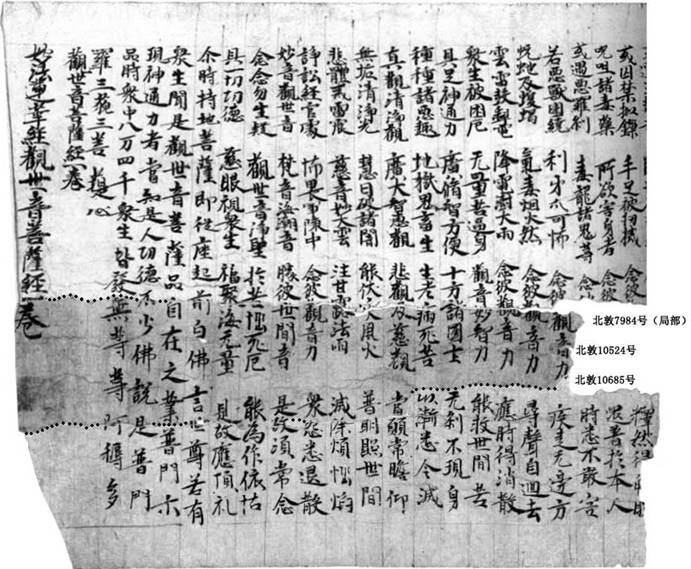 或囚禁枷鎖 手足被杻械 念彼 釋然得
呪咀諸毒藥 所欲害身者 念彼 還著於本人
或遇惡羅刹 毒龍諸鬼等 念彼 時悉不敢害
若惡獸圍繞 利牙爪可怖 念彼觀音力 疾走无邊方
蚖虵及蝮蝎 氣毒煙火然 念彼觀音力 尋聲自迴去
雲雷鼓掣電 降雹澍大雨 念彼觀音力 應時得消散
衆生被困厄 无量苦逼身 觀音妙智力 能救世間苦
具足神通力 廣脩智方便 十方諸國土 无刹不現身
種種諸惡趣 地獄鬼畜生 生老病死苦 以漸悉令滅
真觀清淨觀 廣大智慧觀 悲觀及慈觀 常願常瞻仰
無垢清淨光 慧日破諸闇 能伏灾風火 普明照世間
悲體戒雷震 慈音妙大雲 注甘露法雨 滅除煩惱焰
諍訟經官處 怖畏軍陣中 念彼觀音力 衆怨悉退散
妙音觀世音 梵音海潮音 勝彼世間音 是故須常念
念念勿生疑 觀世音淨聖 於苦惱死厄 能為作依怙
具一切功德 慈眼視衆生 福聚海无量 是故應頂礼
尒時持地菩薩即從座起前白佛言世尊若有
衆生聞是觀世音菩薩品自在之業普門示
現神通力者當知是人功德不少佛說是普門
品時衆中八万四千衆生皆發無等等阿耨多
羅三藐三菩提心
觀世音菩薩經一卷
妙法蓮華經觀世音菩薩經一卷
北敦7984号（局部）
北敦10524号
北敦10685号